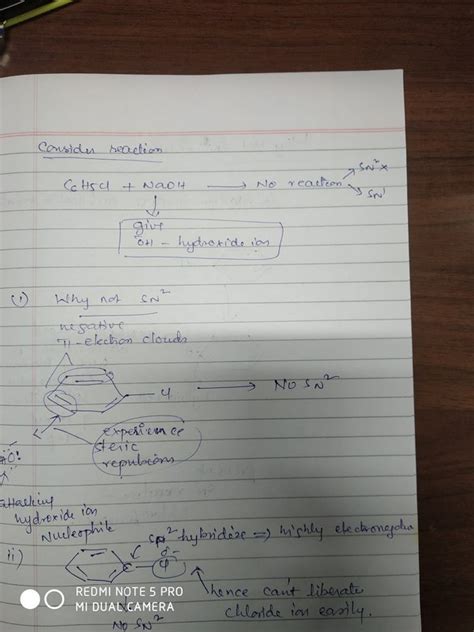 Consider reaction
C6H5Cl + NaOH → No reaction
SN²x
SN¹
give
OH - hydroxide ion
(i) Why not SN²
negative
π-electron clouds
Cl → NO SN²
experience
steric
repulsions
Attacking
hydroxide ion
Nucleophile
ii) sp² hybridize ⇒ highly
Cl
hence can't liberate
chloride ion easily.
NO SN²
REDMI NOTE 5 PRO
MI DUAL CAMERA